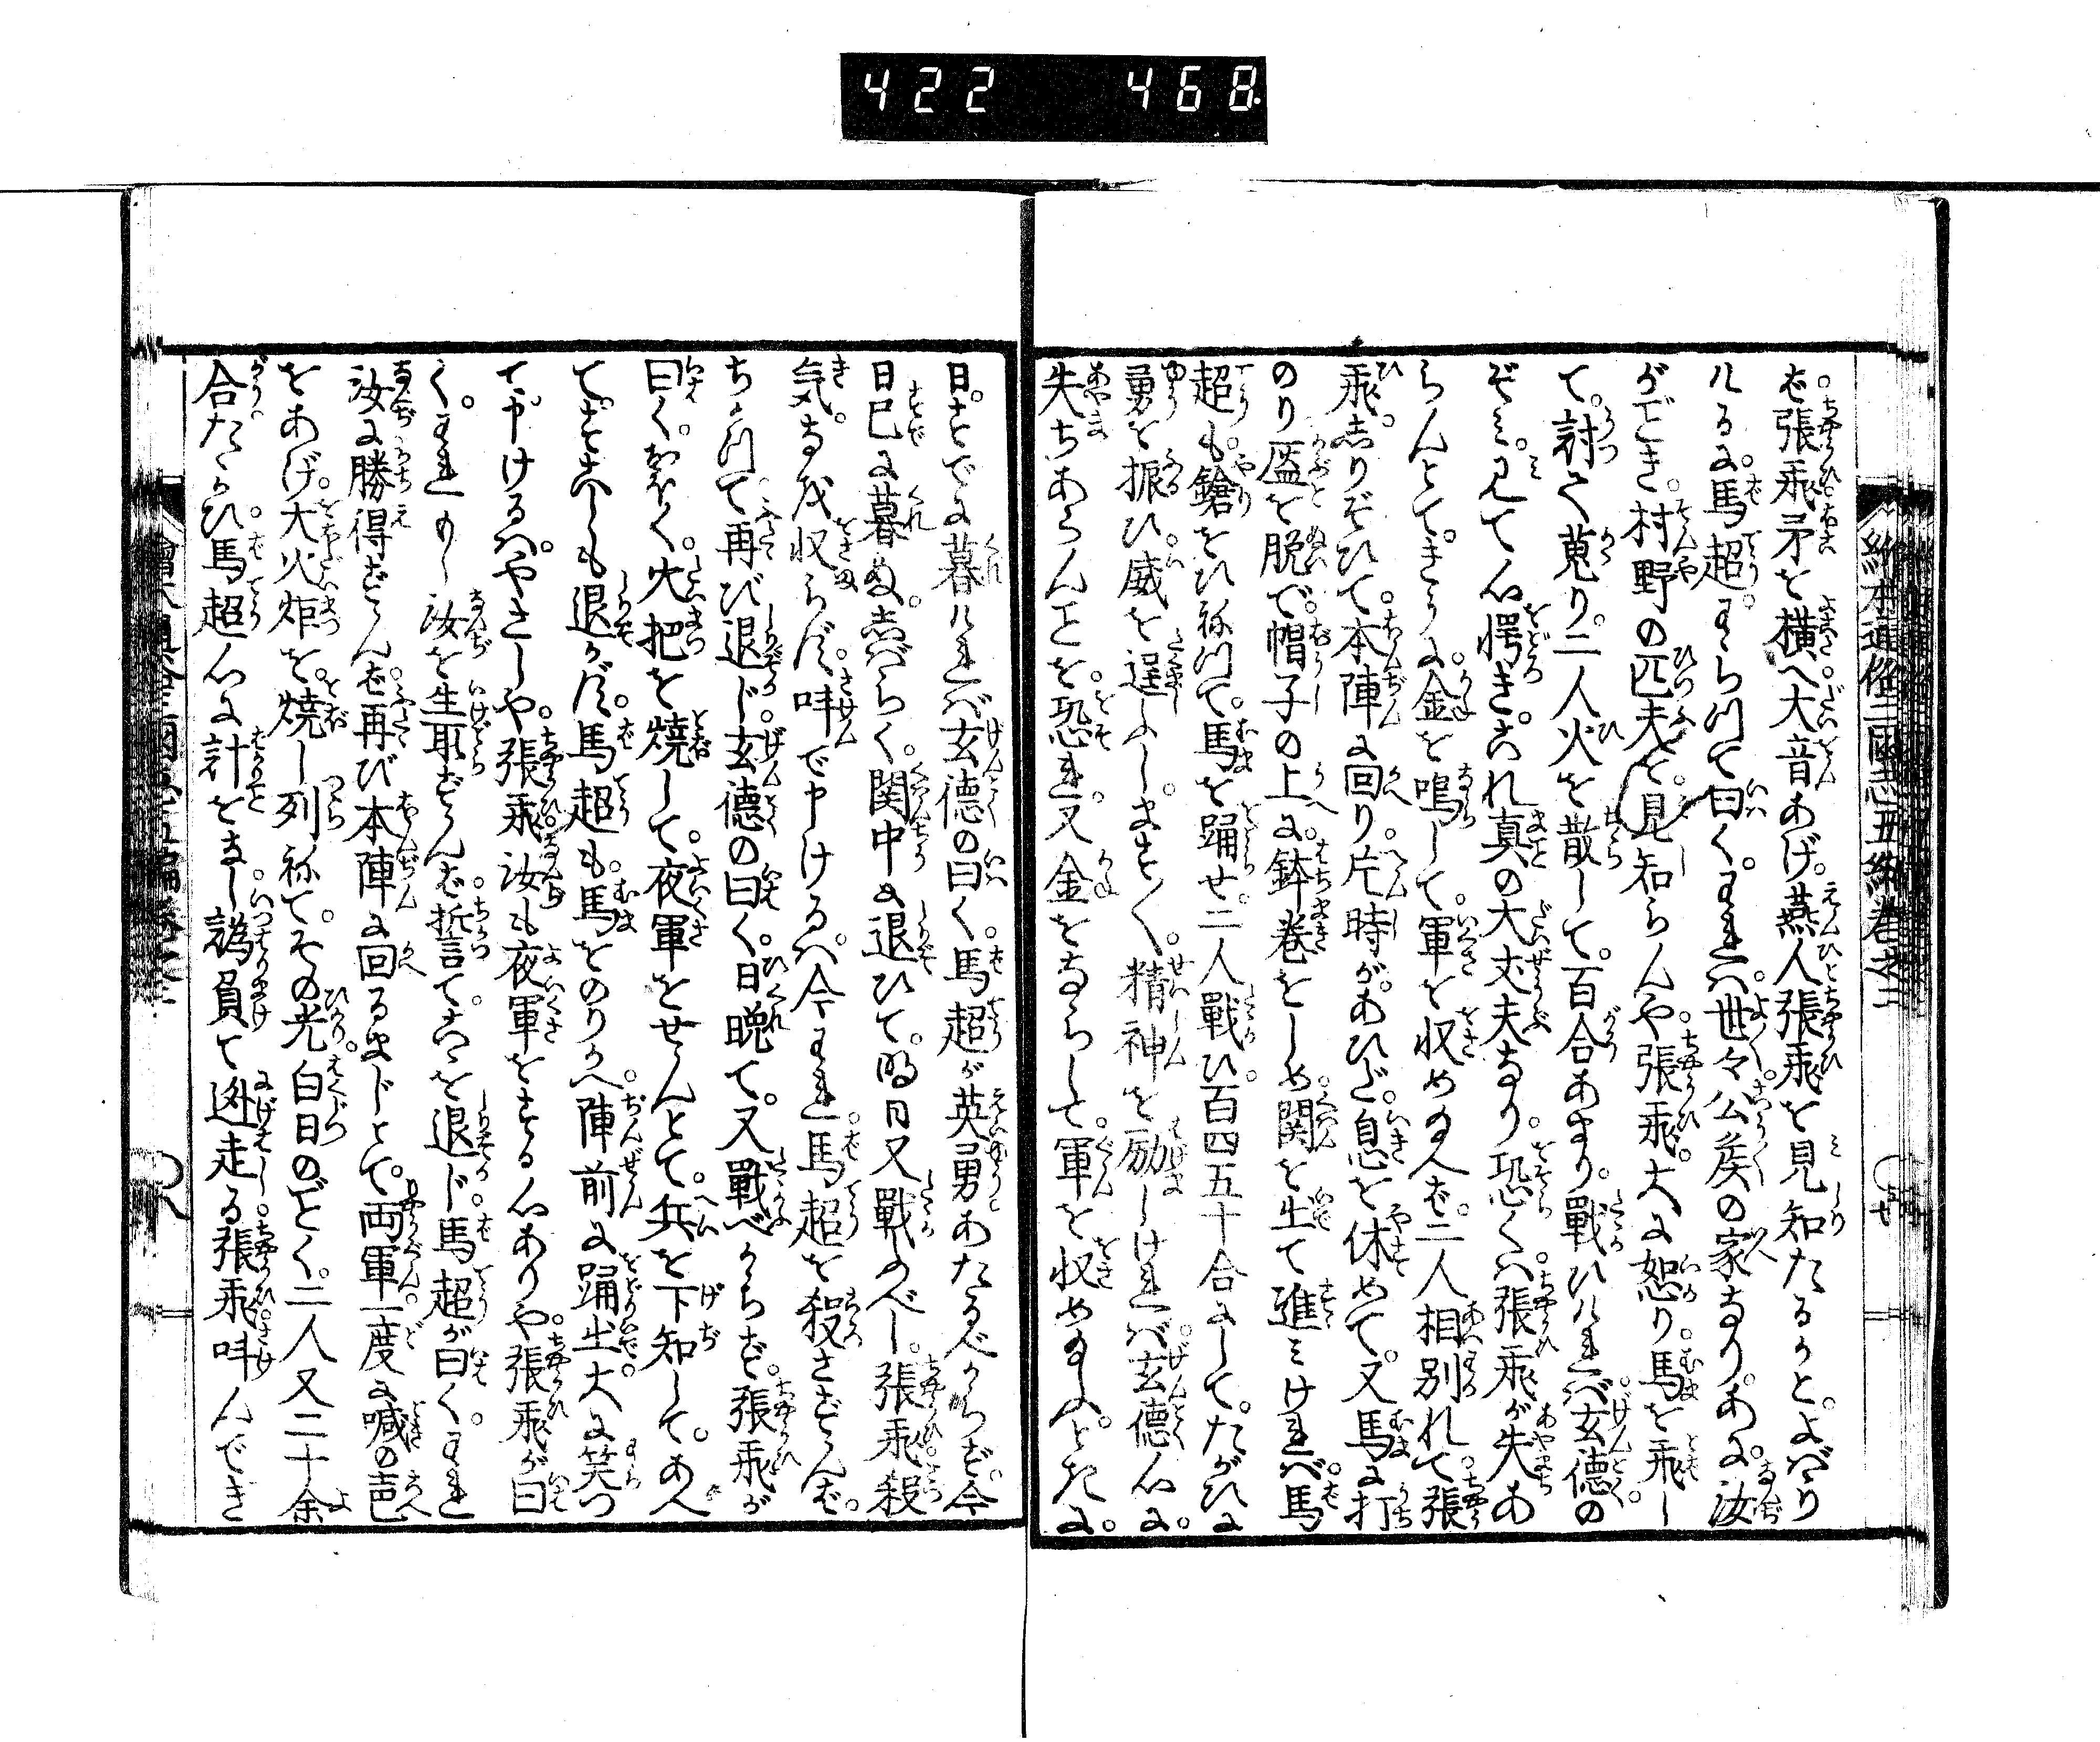 422 468
絵本通俗三國志五編巻之二
ば張飛矛を横へ大音あげ。燕人張飛を見知たるかと。よばゝり
ければ馬超わらつて曰く。われハ世々公侯の家なり。あに汝
がごとき村野の匹夫を見知らんや張飛。大に怒り。馬を飛し
て。討て蒐り。二人火を散して。百合あまり。戰ひけれバ玄德の
ぞミ。見て心愕き。これ真の大丈夫なり。恐くハ張飛が失あ
らんとて。きうに金を鳴して。軍を収め給へば。二人相別れて張
飛。しりぞひて。本陣に回り片時があひだ。息を休めて。又馬に打
のり盔を脱で。帽子の上に鉢巻をしめ関を出て進ミけれバ馬
超も鎗をひねつて。馬を踊せ二人戰ひ百四五十合にして。たがひに
勇を振ひ威を逞ふし。ます〳〵。精神を励しけれバ玄德心に。
失ちあらんことを。恐れ又金をならして。軍を収め給ふ。ときに。
日。すでに暮けれバ玄德の曰く。馬超が英勇あたるべからず。今
日已に暮ぬ。しばらく。関中に退ひて。明日又戰ふべし。張飛殺
気。なを収らず。叫で申けるハ。今われ馬超を殺さずんば。
ちかつて再び退じ。玄德の曰く。日晩て。又戰べからず。張飛が
曰く。おほく。火把を燒して。夜軍をせんとて。兵を下知して。あへ
て。すこしも退かず。馬超も。馬をのりかへ。陣前に踊出。大に笑つ
て申けるハ。やさしや。張飛。汝も夜軍をする心ありや。張飛が曰
く。われもし汝を生取ずんば誓て。こゝを退じ。馬超が曰く。われ
汝に勝得ずんば。再び本陣に回るまじとて。両軍一度に喊の声
をあげ。大火炬を。燒し列ねて。その光白日のごとく。二人又二十余
合たゝかひ。馬超心に計をなし。譌負て迯走る張飛叫んでき